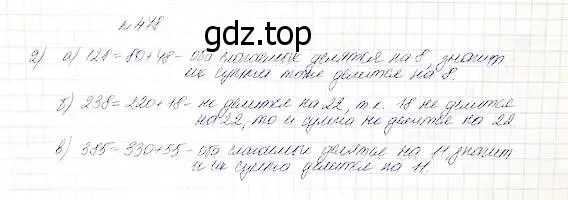 № 478
gdz.top
2) а) 128 = 80 + 48 - оба слагаемые делятся на 8, значит
их сумма тоже делится на 8.
б) 238 = 220 + 18 - не делится на 22, т.к. 18 не делится
на 22, то и сумма не делится на 22
в) 385 = 330 + 55 - оба слагаемые делятся на 11, значит
и их сумма делится на 11.